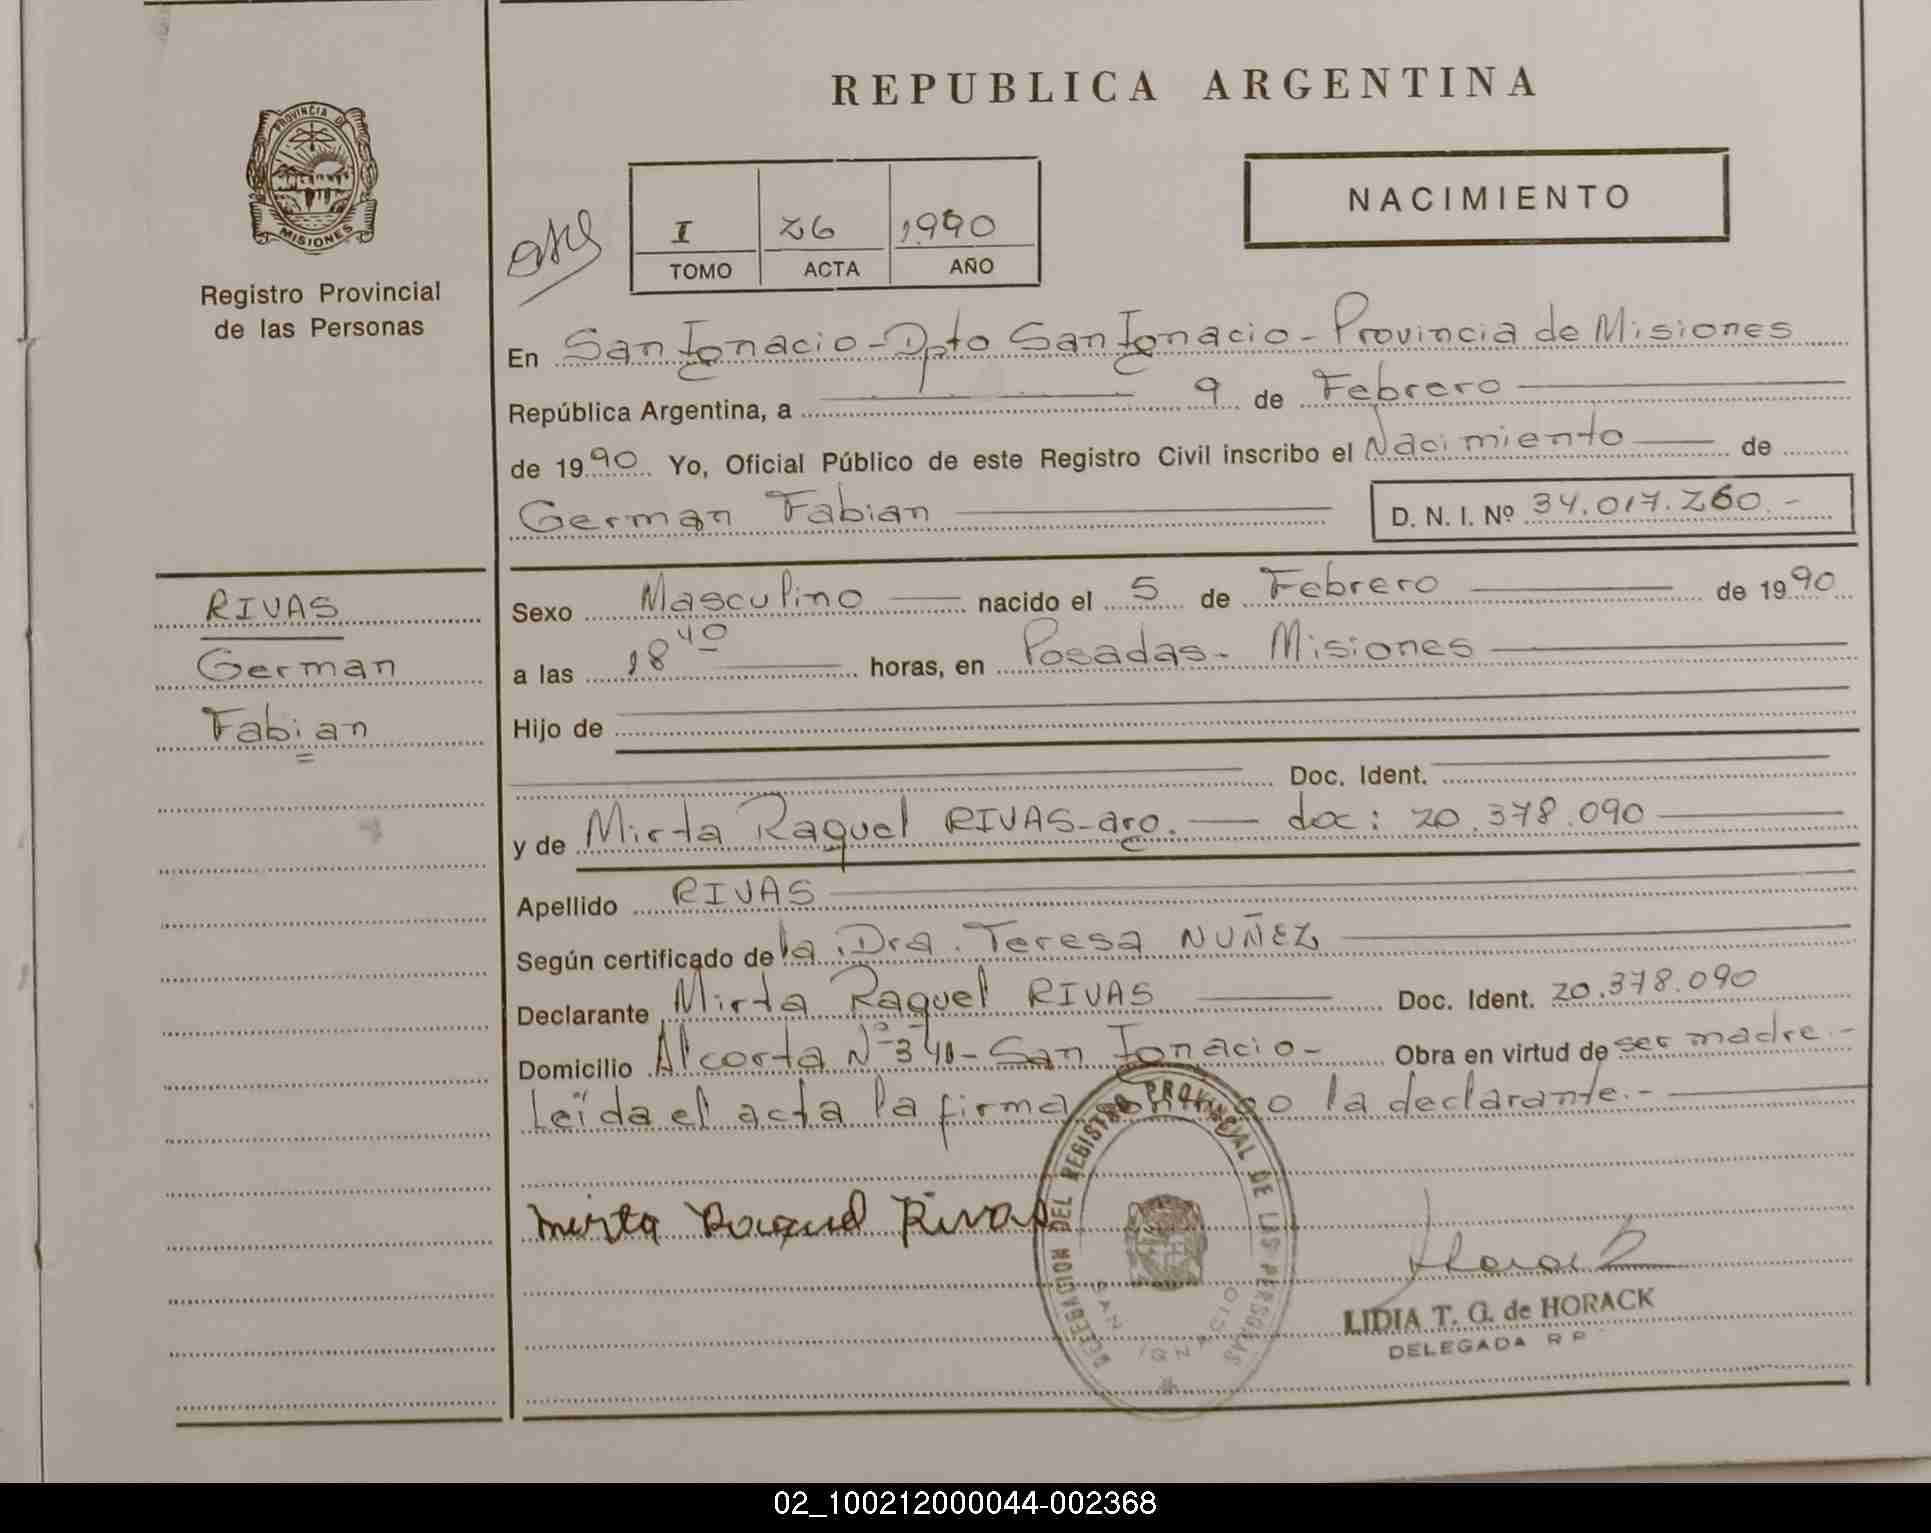 REPUBLICA ARGENTINA
PROVINCIA DE
MISIONES
Registro Provincial
de las Personas
I 26 1990
TOMO ACTA AÑO
NACIMIENTO
En San Ignacio - Dpto San Ignacio - Provincia de Misiones
República Argentina, a 9 de Febrero
de 1990 Yo, Oficial Público de este Registro Civil inscribo el Nacimiento de
German Fabian D. N. I. Nº 34.017.260.-
RIVAS
German
Fabian
Sexo Masculino nacido el 5 de Febrero de 1990
a las 18 40 horas, en Posadas - Misiones
Hijo de
Doc. Ident.
y de Mirta Raquel RIVAS - arg. doc: 20.378.090
Apellido RIVAS
Según certificado de la Dra. Teresa NUÑEZ
Declarante Mirta Raquel RIVAS Doc. Ident. 20.378.090
Domicilio Alcorta Nº 340 - San Ignacio - Obra en virtud de ser madre.-
Leída el acta la firma conmigo la declarante.-
Mirta Raquel Rivas
DELEGACION DEL REGISTRO PROVINCIAL DE LAS PERSONAS
SAN IGNACIO
LIDIA T. G. de HORACK
DELEGADA R P
02_100212000044-002368